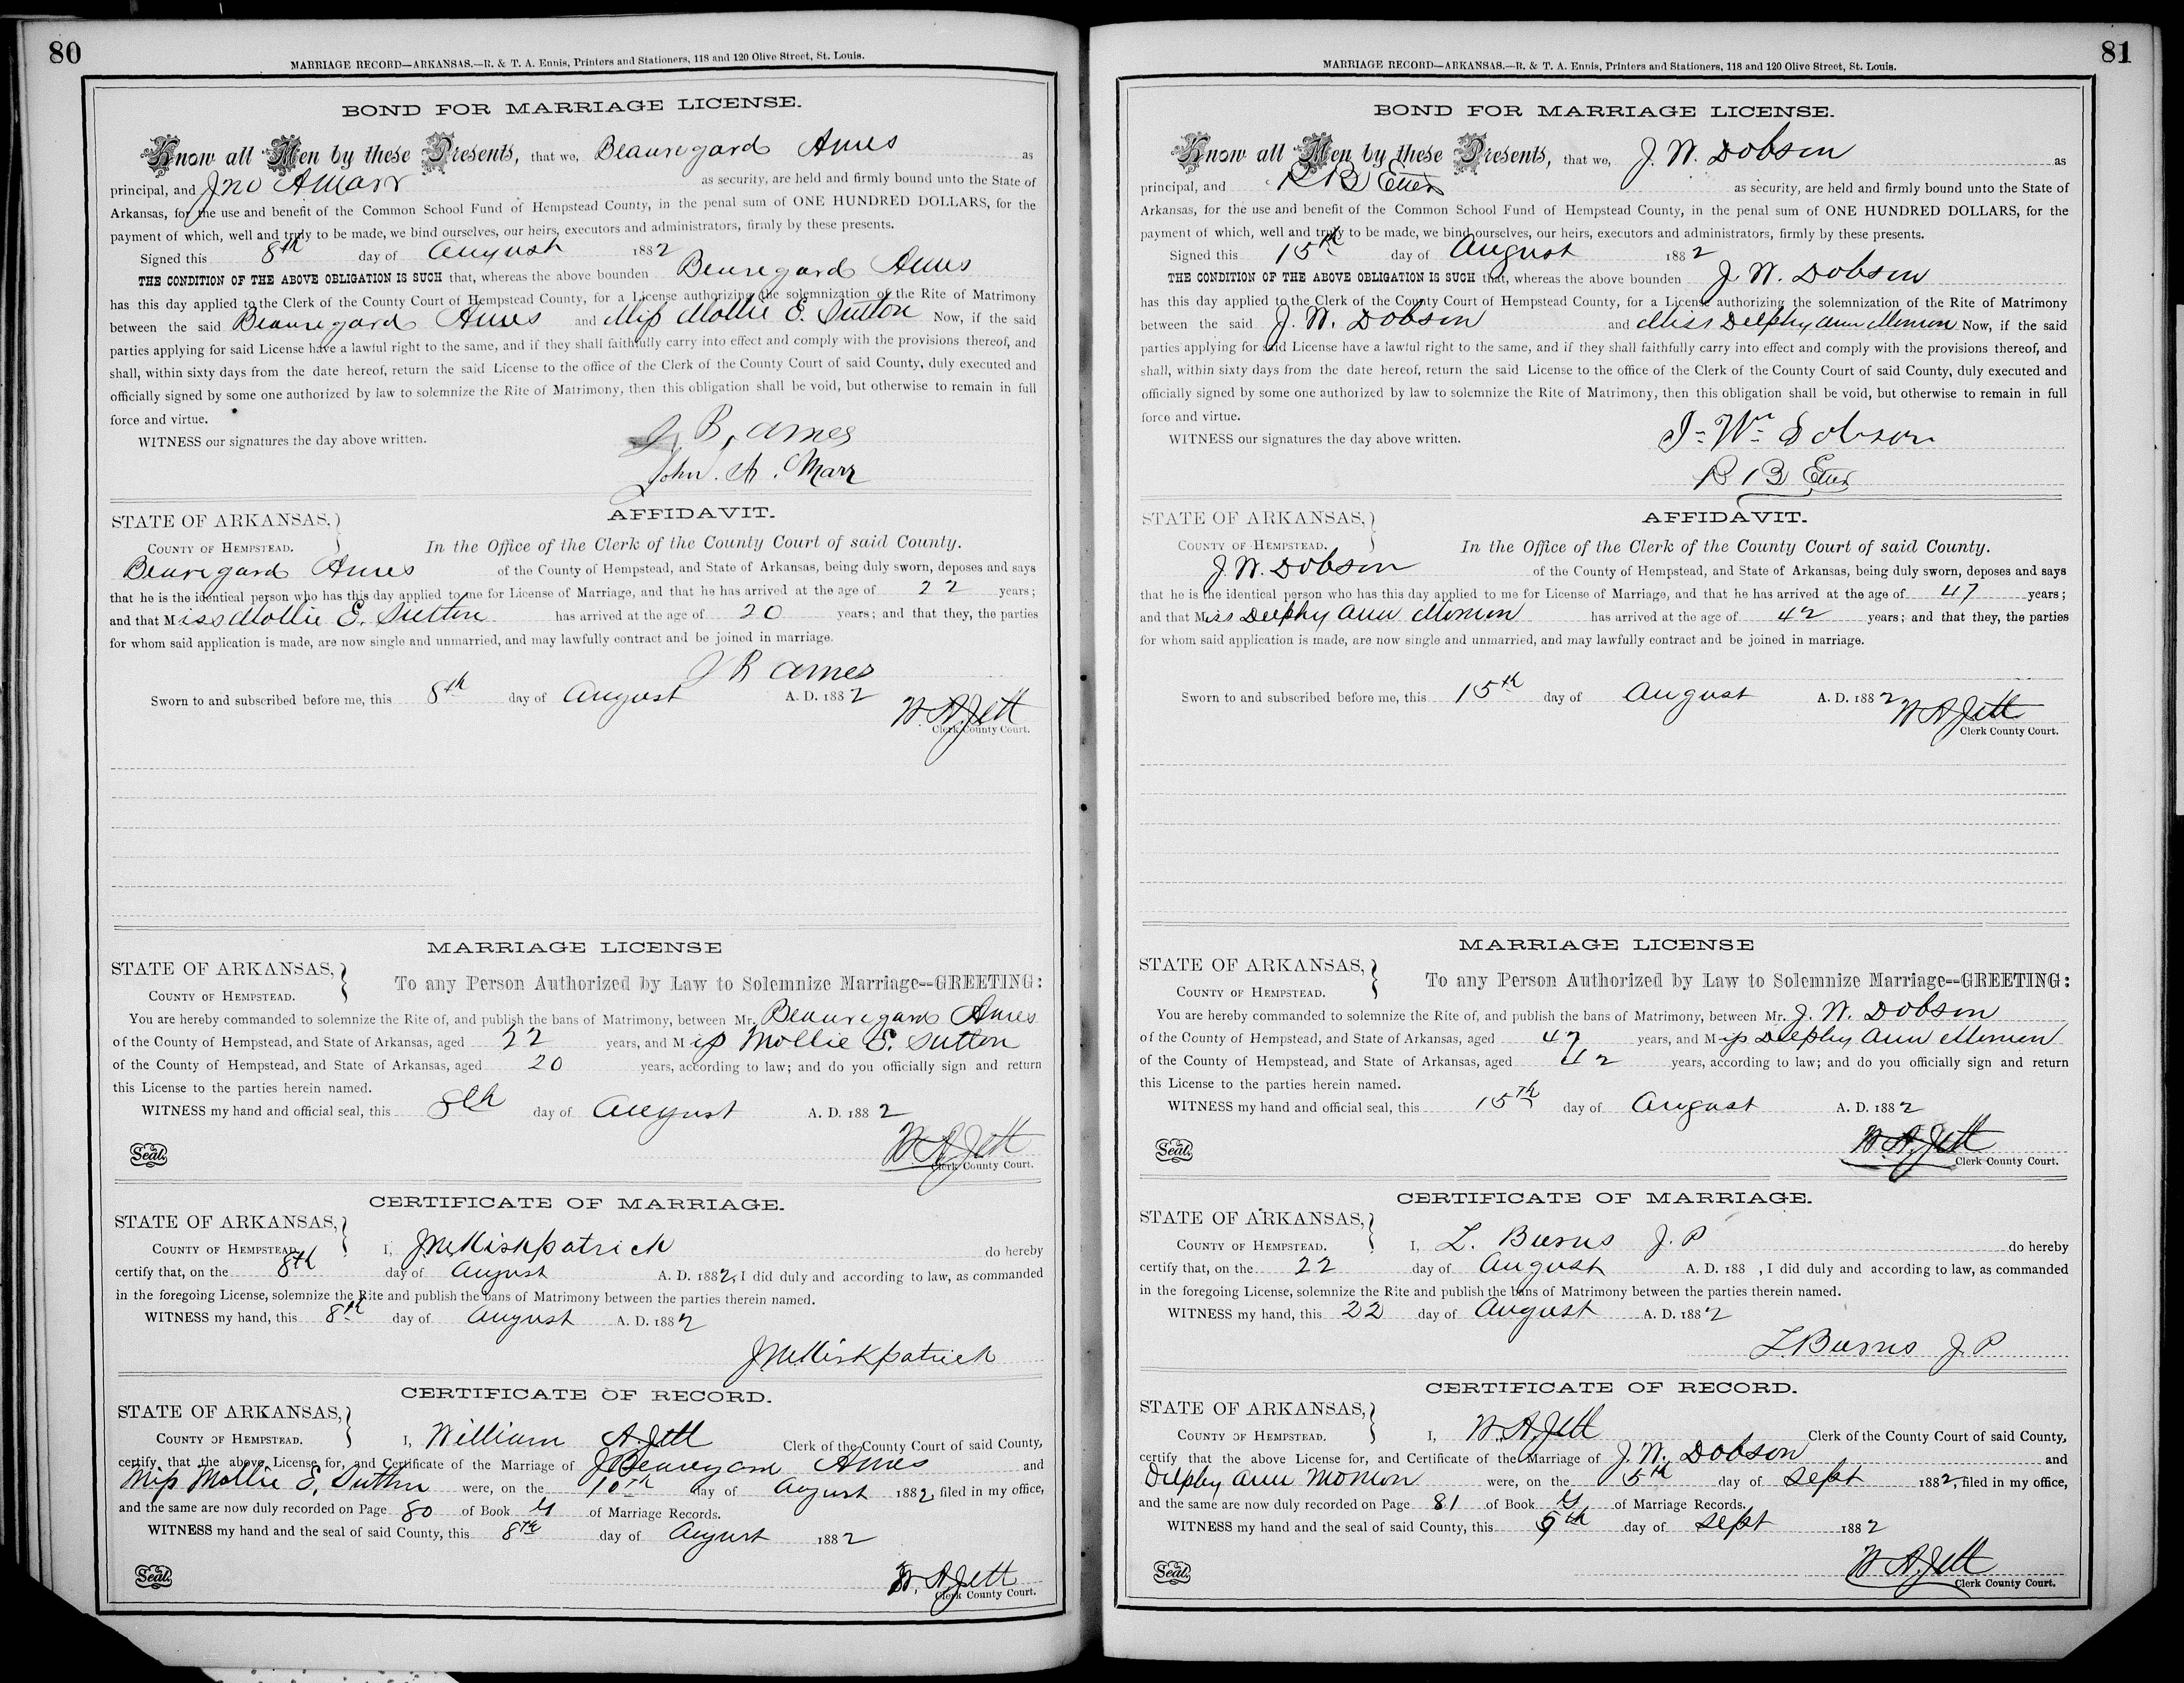 80
MARRIAGE RECORD—ARKANSAS.—R. & T. A. Ennis, Printers and Stationers, 118 and 120 Olive Street, St. Louis.
BOND FOR MARRIAGE LICENSE.
Know all Men by these Presents, that we, Beauregard Ames as
principal, and Jno A Marr as security, are held and firmly bound unto the State of
Arkansas, for the use and benefit of the Common School Fund of Hempstead County, in the penal sum of ONE HUNDRED DOLLARS, for the
payment of which, well and truly to be made, we bind ourselves, our heirs, executors and administrators, firmly by these presents.
Signed this 8th day of August 1882
THE CONDITION OF THE ABOVE OBLIGATION IS SUCH that, whereas the above bounden Beauregard Ames
has this day applied to the Clerk of the County Court of Hempstead County, for a License authorizing the solemnization of the Rite of Matrimony
between the said Beauregard Ames and Miss Mollie E. Sutton Now, if the said
parties applying for said License have a lawful right to the same, and if they shall faithfully carry into effect and comply with the provisions thereof, and
shall, within sixty days from the date hereof, return the said License to the office of the Clerk of the County Court of said County, duly executed and
officially signed by some one authorized by law to solemnize the Rite of Matrimony, then this obligation shall be void, but otherwise to remain in full
force and virtue.
WITNESS our signatures the day above written.
J B, Ames
John. A. Marr
AFFIDAVIT.
STATE OF ARKANSAS,
COUNTY OF HEMPSTEAD.
In the Office of the Clerk of the County Court of said County.
Beauregard Ames of the County of Hempstead, and State of Arkansas, being duly sworn, deposes and says
that he is the identical person who has this day applied to me for License of Marriage, and that he has arrived at the age of 22 years;
and that Miss Mollie E. Sutton has arrived at the age of 20 years; and that they, the parties
for whom said application is made, are now single and unmarried, and may lawfully contract and be joined in marriage.
J B Ames
Sworn to and subscribed before me, this 8th day of August A. D. 1882
W. A. Jett
Clerk County Court.
MARRIAGE LICENSE
STATE OF ARKANSAS,
COUNTY OF HEMPSTEAD.
To any Person Authorized by Law to Solemnize Marriage--GREETING:
You are hereby commanded to solemnize the Rite of, and publish the bans of Matrimony, between Mr. Beauregard Ames
of the County of Hempstead, and State of Arkansas, aged 22 years, and Miss Mollie E. Sutton
of the County of Hempstead, and State of Arkansas, aged 20 years, according to law; and do you officially sign and return
this License to the parties herein named.
WITNESS my hand and official seal, this 8th day of August A. D. 1882
W. A. Jett
Seal.
Clerk County Court.
CERTIFICATE OF MARRIAGE.
STATE OF ARKANSAS,
COUNTY OF HEMPSTEAD.
I, J M Kirkpatrick do hereby
certify that, on the 8th day of August A. D. 1882, I did duly and according to law, as commanded
in the foregoing License, solemnize the Rite and publish the bans of Matrimony between the parties therein named.
WITNESS my hand, this 8th day of August A. D. 1882
J M Kirkpatrick
CERTIFICATE OF RECORD.
STATE OF ARKANSAS,
COUNTY OF HEMPSTEAD.
I, William A. Jett Clerk of the County Court of said County,
certify that the above License for, and Certificate of the Marriage of J Beauregard Ames and
Miss Mollie E. Sutton were, on the 10th day of August 1882, filed in my office,
and the same are now duly recorded on Page 80 of Book of Marriage Records.
WITNESS my hand and the seal of said County, this 8th day of August 1882
W. A. Jett
Seal.
Clerk County Court.
81
MARRIAGE RECORD—ARKANSAS.—R. & T. A. Ennis, Printers and Stationers, 118 and 120 Olive Street, St. Louis.
BOND FOR MARRIAGE LICENSE.
Know all Men by these Presents, that we, J. W. Dobson as
principal, and R B Etter as security, are held and firmly bound unto the State of
Arkansas, for the use and benefit of the Common School Fund of Hempstead County, in the penal sum of ONE HUNDRED DOLLARS, for the
payment of which, well and truly to be made, we bind ourselves, our heirs, executors and administrators, firmly by these presents.
Signed this 15th day of August 1882
THE CONDITION OF THE ABOVE OBLIGATION IS SUCH that, whereas the above bounden J. W. Dobson
has this day applied to the Clerk of the County Court of Hempstead County, for a License authorizing the solemnization of the Rite of Matrimony
between the said J. W. Dobson and Miss Delphy Ann Momon Now, if the said
parties applying for said License have a lawful right to the same, and if they shall faithfully carry into effect and comply with the provisions thereof, and
shall, within sixty days from the date hereof, return the said License to the office of the Clerk of the County Court of said County, duly executed and
officially signed by some one authorized by law to solemnize the Rite of Matrimony, then this obligation shall be void, but otherwise to remain in full
force and virtue.
WITNESS our signatures the day above written.
J- Wm Dobson
R B Etter
AFFIDAVIT.
STATE OF ARKANSAS,
COUNTY OF HEMPSTEAD.
In the Office of the Clerk of the County Court of said County.
J. W. Dobson of the County of Hempstead, and State of Arkansas, being duly sworn, deposes and says
that he is the identical person who has this day applied to me for License of Marriage, and that he has arrived at the age of 47 years;
and that Miss Delphy Ann Momon has arrived at the age of 42 years; and that they, the parties
for whom said application is made, are now single and unmarried, and may lawfully contract and be joined in marriage.
Sworn to and subscribed before me, this 15th day of August A. D. 1882
W A Jett
Clerk County Court.
MARRIAGE LICENSE
STATE OF ARKANSAS,
COUNTY OF HEMPSTEAD.
To any Person Authorized by Law to Solemnize Marriage--GREETING:
You are hereby commanded to solemnize the Rite of, and publish the bans of Matrimony, between Mr. J. W. Dobson
of the County of Hempstead, and State of Arkansas, aged 47 years, and Miss Delphy Ann Momon
of the County of Hempstead, and State of Arkansas, aged 42 years, according to law; and do you officially sign and return
this License to the parties herein named.
WITNESS my hand and official seal, this 15th day of August A. D. 1882
W. A. Jett
Seal.
Clerk County Court.
CERTIFICATE OF MARRIAGE.
STATE OF ARKANSAS,
COUNTY OF HEMPSTEAD.
I, L. Burns J. P do hereby
certify that, on the 22 day of August A. D. 188 , I did duly and according to law, as commanded
in the foregoing License, solemnize the Rite and publish the bans of Matrimony between the parties therein named.
WITNESS my hand, this 22 day of August A. D. 1882
L. Burns J. P
CERTIFICATE OF RECORD.
STATE OF ARKANSAS,
COUNTY OF HEMPSTEAD.
I, W. A. Jett Clerk of the County Court of said County,
certify that the above License for, and Certificate of the Marriage of J. W. Dobson and
Delphy Ann Momon were, on the 5th day of Sept 1882, filed in my office,
and the same are now duly recorded on Page 81 of Book of Marriage Records.
WITNESS my hand and the seal of said County, this 5th day of Sept 1882
W A. Jett
Seal.
Clerk County Court.